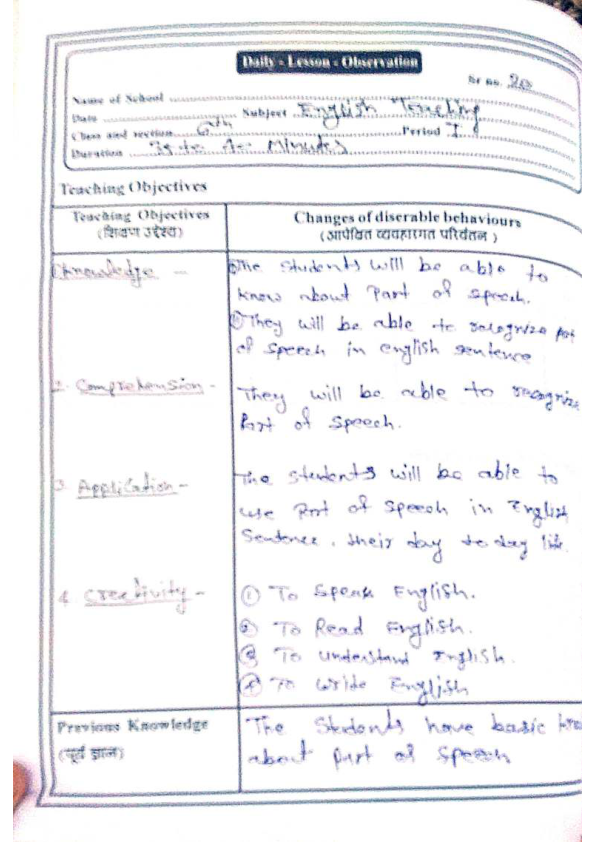 Daily - Lesson - Observation
Sr no. 20
Name of School
Date Subject English Teaching
Class and section 6th Period I
Duration 35 to 40 Minutes
Teaching Objectives
Teaching Objectives
(शिक्षण उद्देश्य)
Changes of diserable behaviours
(आपेक्षित व्यवहारगत परिर्वतन )
1 Knowledge -
① The students will be able to
know about Part of speech.
② They will be able to recognize part
of speech in english sentence
2. Comprehension -
They will be able to recognize
Part of Speech.
3. Application -
The students will be able to
use Part of speech in English
Sentence. their day to day life.
4. Creativity -
① To Speak English.
② To Read English.
③ To understand English.
④ To write English
Previous Knowledge
(पूर्व ज्ञान)
The Students have basic
about Part of Speech